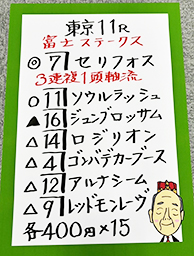 東京11R
富士ステークス
◎7セリフォス
3連複1頭軸流
○11ソウルラッシュ
▲16ジュンブロッサム
△14ロジリオン
△4ゴンバデカーブース
△12アルナシーム
△9レッドモンレーヴ
各400円×15